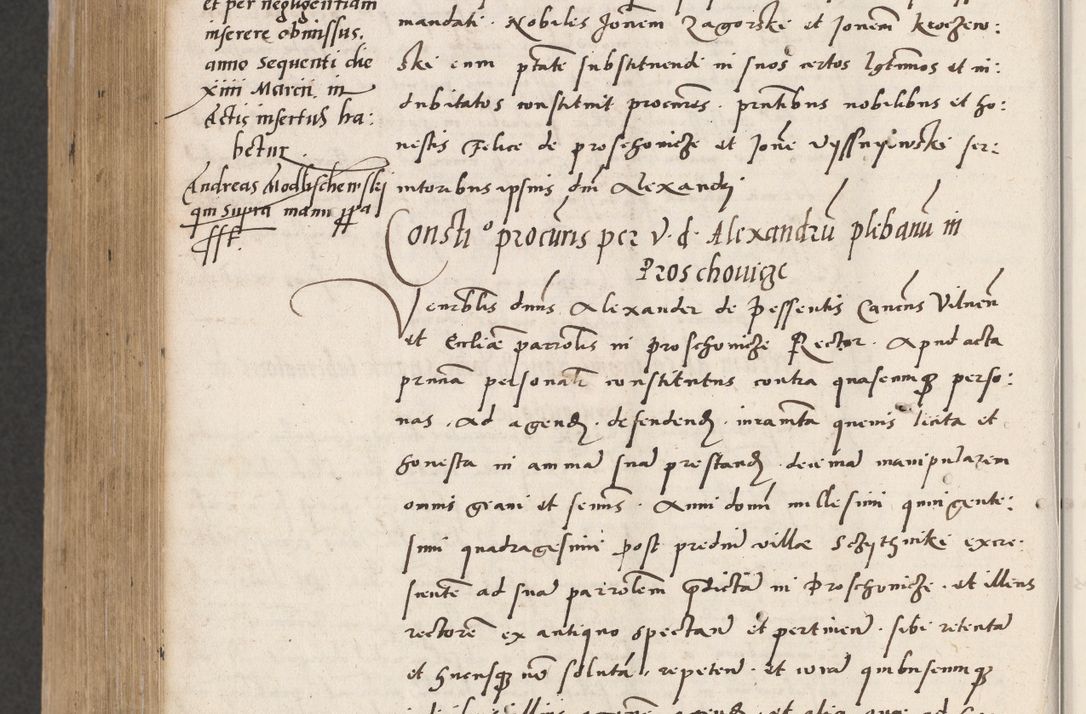 et per neglugentiam
inserere obmissus.
anno sequenti die
xiiii Marcii in
Actis insertus ha:
betur.
Andreas Modlischewskij
qm supra manu ppa
sst.
mandati. Nobiles Jonem Zagorski et Jonem kroczew:
ski cum ptate substituendi in suos certos lgtimos et in:
dubitatos constituit procures. pntibus nobilibus et ho:
nestis Felice de proschowicze et Jone Vyssnyewski ser:
vitoribus ipsius dni Alexandri
Constio procuris per v. d. Alexandru plebanu in
Proschovicze
Venerblis dnus Alexander de Pessentis Cancus Vilnen
et Eccliae parrolis in proschowicze Rector. Apud acta
prntia personalr constitutus contra quascunq perso:
nas. Ad agend. defendend. iuramta quevis licita et
honesta in amma sua prestand. decima manipularem
omnis grani et semis. Anni domi millesimi quingente:
simi quadragesimi post prediu villae Sczythniki excre:
scente ad sua parrolem pdicta in Proschowicze. et illius
rectore ex antiquo spectan et pertinen. sibi retenta
et hucusq no soluta. repeten. et cora quibuscunq